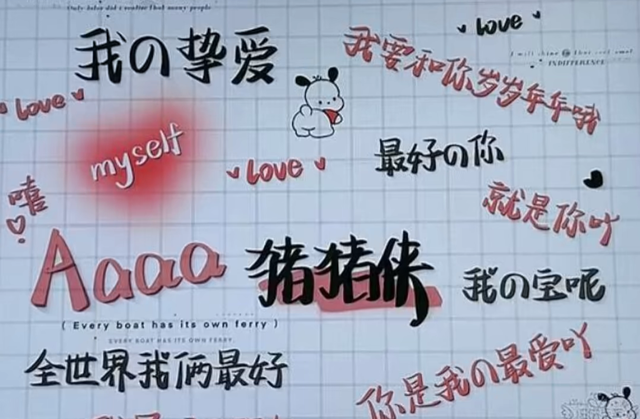 Only love did creation that many people
love
我の挚爱
我要和你岁岁年年哦
INDIFFERENCE
love
myself
love
最好の你
嘻
就是你吖
Aaaa 猪猪侠
我の宝呢
( Every boat has its own ferry )
EVERY BOAT HAS ITS OWN FERRY.
全世界我俩最好
你是我の最爱吖